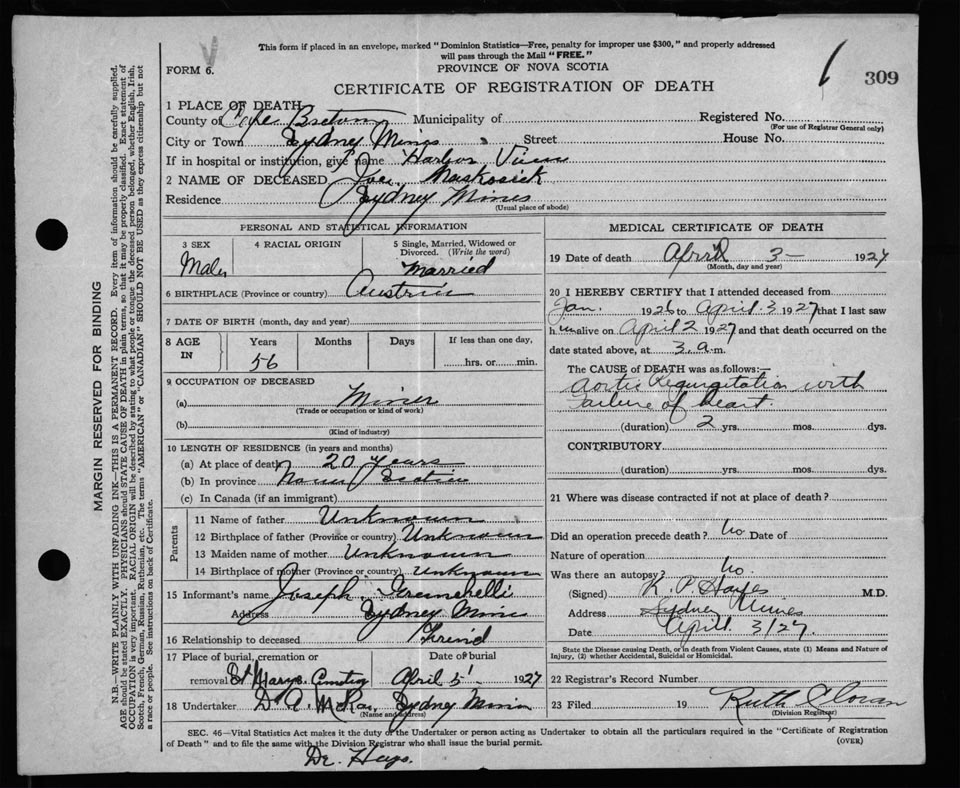 This form if placed in an envelope, marked "Dominion Statistics—Free, penalty for improper use $300," and properly addressed
will pass through the Mail "FREE."
FORM 6.
PROVINCE OF NOVA SCOTIA
309
CERTIFICATE OF REGISTRATION OF DEATH
MARGIN RESERVED FOR BINDING
N.B.—WRITE PLAINLY WITH UNFADING INK—THIS IS A PERMANENT RECORD. Every item of information should be carefully supplied.
AGE should be stated EXACTLY. PHYSICIANS should STATE CAUSE OF DEATH in plain terms, so that it may be properly classified. Exact statement of
OCCUPATION is very important. RACIAL ORIGIN will be described by stating to what people or tongue the deceased person belonged, whether English, Irish,
Scotch, French, German, Russian, Ruthenian, etc. The terms "AMERICAN" or "CANADIAN" SHOULD NOT BE USED as they express citizenship but not
a race or people. See instructions on back of Certificate.
1 PLACE OF DEATH
County of Cape Breton Municipality of Registered No.
(For use of Registrar General only)
City or Town Sydney Mines Street House No.
If in hospital or institution, give name Harbor View
2 NAME OF DECEASED Joe Maskosick
Residence Sydney Mines
(Usual place of abode)
PERSONAL AND STATISTICAL INFORMATION
3 SEX 4 RACIAL ORIGIN 5 Single, Married, Widowed or
Divorced. (Write the word)
Male Married
6 BIRTHPLACE (Province or country) Austria
7 DATE OF BIRTH (month, day and year)
8 AGE IN Years Months Days If less than one day,
56 hrs. or min.
9 OCCUPATION OF DECEASED
(a) Miner
(Trade or occupation or kind of work)
(b)
(Kind of industry)
10 LENGTH OF RESIDENCE (in years and months)
(a) At place of death 20 years
(b) In province Nova Scotia
(c) In Canada (if an immigrant)
Parents
11 Name of father Unknown
12 Birthplace of father (Province or country) Unknown
13 Maiden name of mother Unknown
14 Birthplace of mother (Province or country) Unknown
15 Informant's name Joseph
Address Sydney Mines
16 Relationship to deceased Freind
17 Place of burial, cremation or Date of burial
removal St Marys Cemetery April 5 1927
18 Undertaker D A McRae, Sydney Mines
(Name and address)
MEDICAL CERTIFICATE OF DEATH
19 Date of death April 3 — 1927
(Month, day and year)
20 I HEREBY CERTIFY that I attended deceased from
Jan. 1926 to April 3 1927 that I last saw
h im alive on April 2 1927 and that death occurred on
date stated above, at 3 a.m.
The CAUSE of DEATH was as follows:—
Aortic Regurgitation with
Failure of heart.
(duration) 2 yrs. mos. dys.
CONTRIBUTORY
(duration) yrs. mos. dys.
21 Where was disease contracted if not at place of death?
Did an operation precede death? No Date of
Nature of operation
Was there an autopsy? No.
(Signed) K. P. Hayes M.D.
Address Sydney Mines
Date April 3/27.
State the Disease causing Death, or in death from Violent Causes, state (1) Means and Nature of
Injury, (2) whether Accidental, Suicidal or Homicidal.
22 Registrar's Record Number
23 Filed 19 Ruth
(Division Registrar)
SEC. 46—Vital Statistics Act makes it the duty of the Undertaker or person acting as Undertaker to obtain all the particulars required in the "Certificate of Registration
of Death" and to file the same with the Division Registrar who shall issue the burial permit. (OVER)
Dr. Hays.